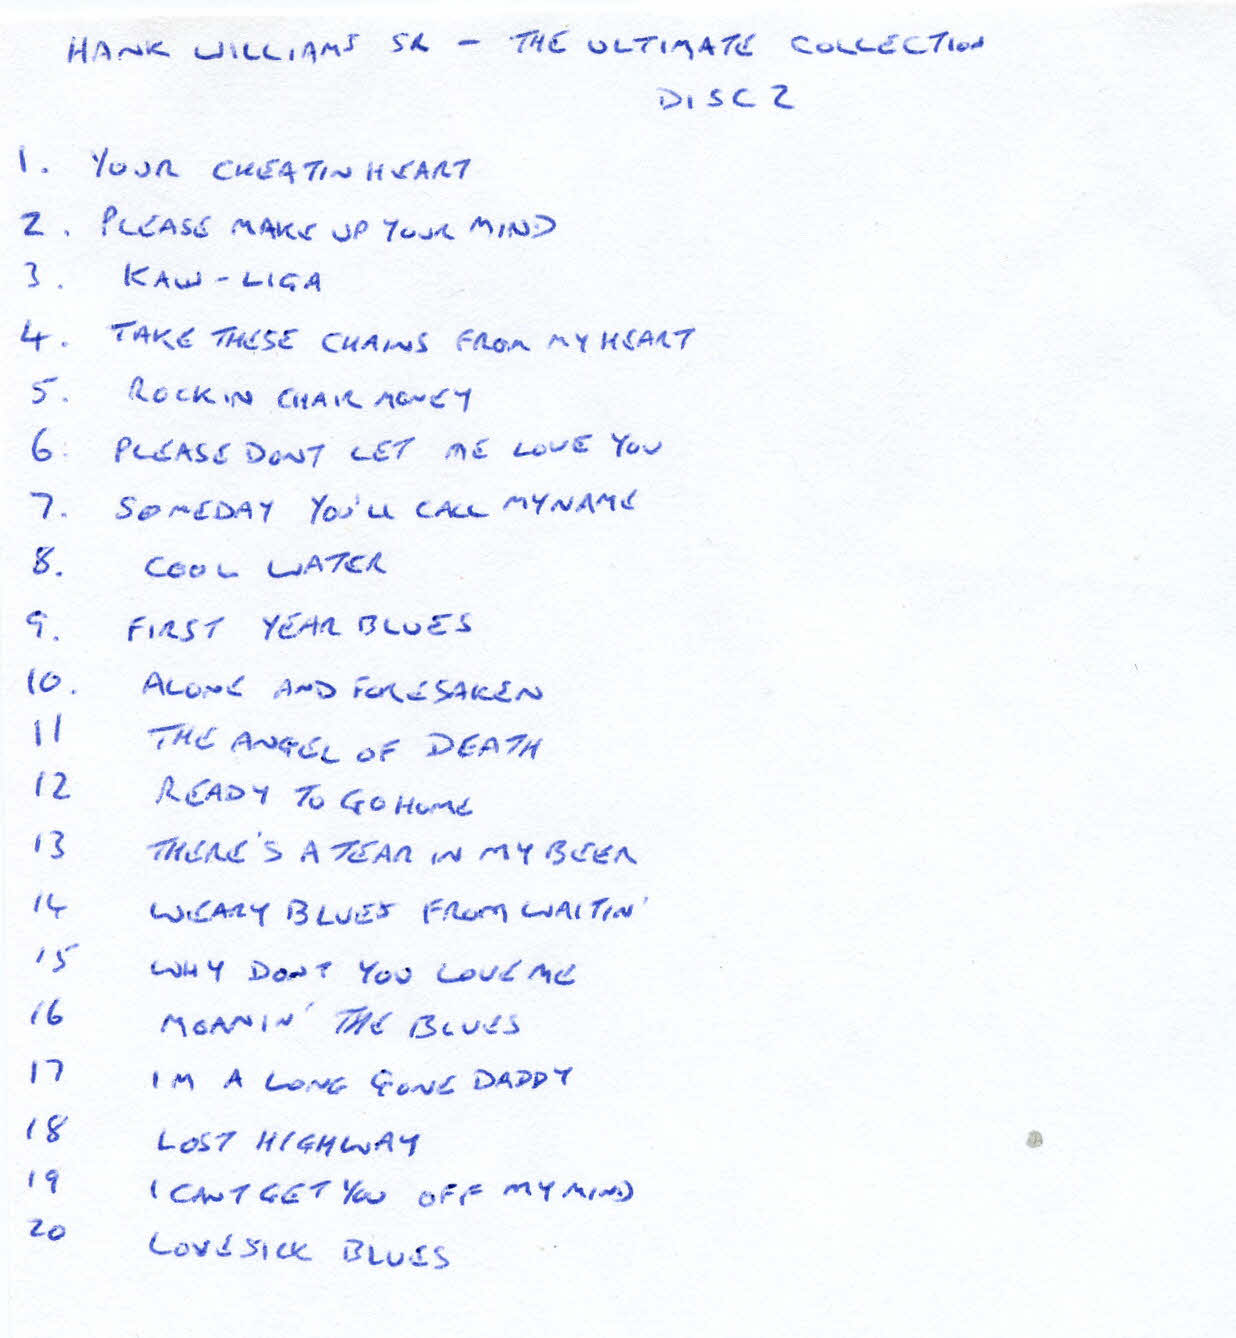 HANK WILLIAMS SR - THE ULTIMATE COLLECTION
DISC 2
1. YOUR CHEATIN HEART
2. PLEASE MAKE UP YOUR MIND
3. KAW-LIGA
4. TAKE THESE CHAINS FROM MY HEART
5. ROCKIN CHAIR MONEY
6. PLEASE DONT LET ME LOVE YOU
7. SOMEDAY YOU'LL CALL MY NAME
8. COOL WATER
9. FIRST YEAR BLUES
10. ALONE AND FORESAKEN
11 THE ANGEL OF DEATH
12 READY TO GO HOME
13 THERE'S A TEAR IN MY BEER
14 WEARY BLUES FROM WAITIN'
15 WHY DONT YOU LOVE ME
16 MOANIN' THE BLUES
17 IM A LONG GONE DADDY
18 LOST HIGHWAY
19 I CANT GET YOU OFF MY MIND
20 LOVESICK BLUES